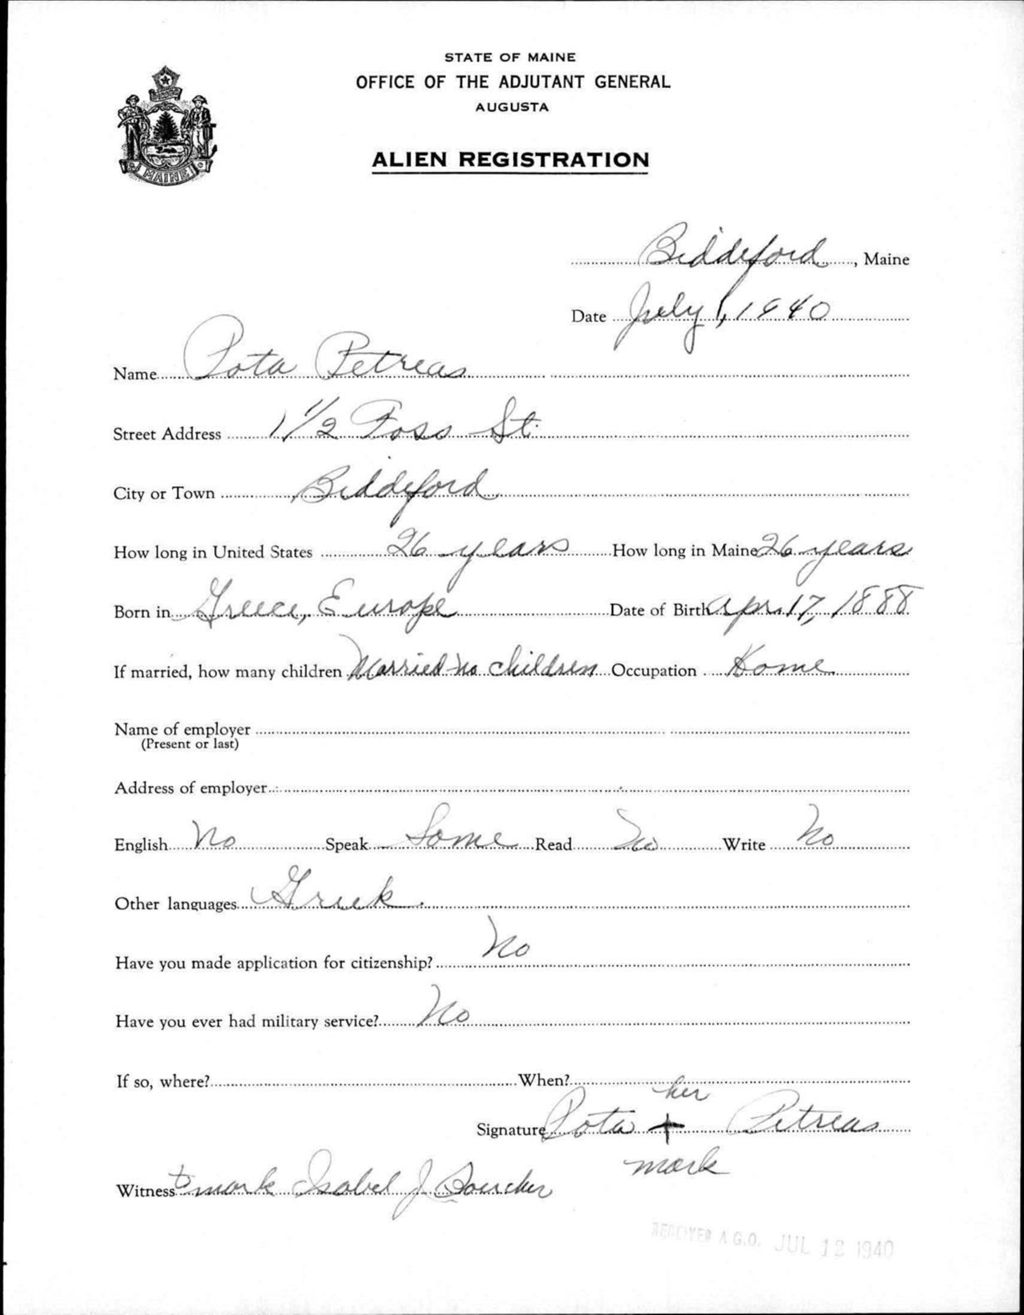 STATE OF MAINE
OFFICE OF THE ADJUTANT GENERAL
AUGUSTA
ALIEN REGISTRATION
MAINE
Biddeford, Maine
Date July 1, 1940
Name Pota Petreas
Street Address 1 1/2 Foss St.
City or Town Biddeford
How long in United States 26 years How long in Maine 26 years
Born in Greece, Europe Date of Birth Apr. 17, 1888
If married, how many children Married no children Occupation Home
Name of employer
(Present or last)
Address of employer
English No Speak Some Read No Write No
Other languages Greek.
Have you made application for citizenship? No
Have you ever had military service? No
If so, where? When?
her
Signature Pota + Petreas
mark
Witness to mark Isabel J.
RECEIVED A.G.O. JUL 12 1940